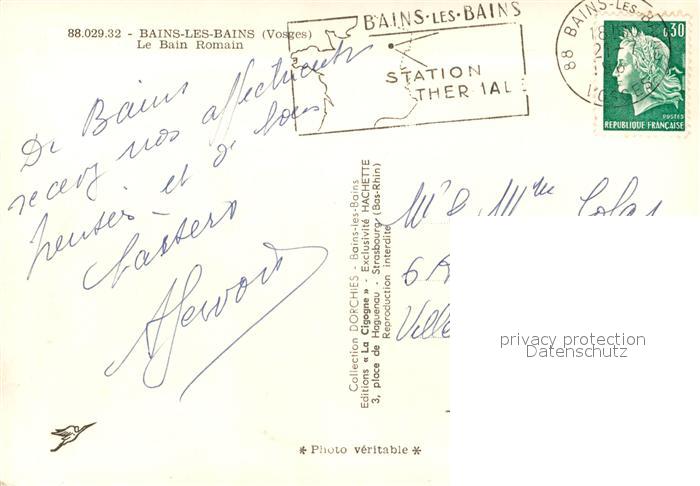 88.029.32 - BAINS-LES-BAINS (Vosges)
Le Bain Romain
BAINS-LES-BAINS
STATION
THERMALE
88 BAINS-LES-B
VOSGES
0,30
POSTES
REPUBLIQUE FRANÇAISE
De Bains
recevez nos affectueuses
pensées et de bons
baisers
Collection DORCHIES - Bains-les-Bains
Editions « La Cigogne » - Exclusivité HACHETTE
3, place de Haguenau - Strasbourg (Bas-Rhin)
Reproduction Interdite
Mr & Mme Colas
6 R
Ville
privacy protection
Datenschutz
* Photo véritable *